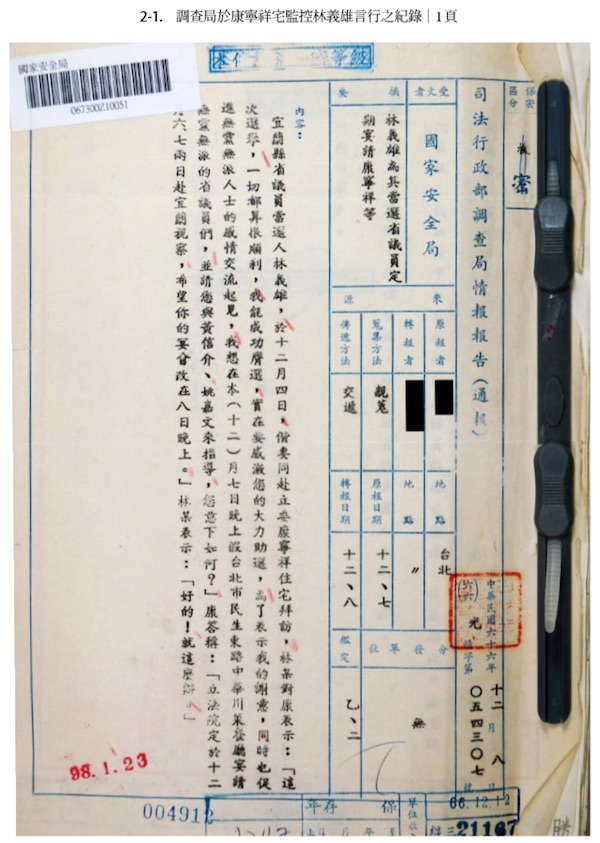 2-1. 調查局於康寧祥宅監控林義雄言行之紀錄｜1頁
國家安全局
067300Z10051
保密區分
密
司法行政部調查局情報報告（通報）
中華民國六十六年十二月八日
(六六)光
字第〇五四三〇七號
受文者
國家安全局
摘要
林義雄為其當選省議員定
期宴請康寧祥等
來源
原報者
轉報者
蒐集方法
觀蒐
傳遞方法
交遞
地點
台北
地點
〃
原報日期
十二、七
轉報日期
十二、八
分發單位
無
鑑定
乙、二
內容：
宜蘭縣省議員當選人林義雄，於十二月四日，偕妻同赴立委康寧祥住宅拜訪，林某對康表示：「這
次選舉，一切都算很順利，我能成功膺選，實在要感激您的大力助選，為了表示我的謝意，同時也促
進無黨無派人士的感情交流起見，我想在本（十二）月七日晚上假台北市民生東路中華川菜餐廳宴請
無黨無派的省議員們，並請您與黃信介、姚嘉文來指導，您意下如何？」康答稱：「立法院定於十二
月六、七兩日赴宜蘭視察，希望你的宴會改在八日晚上。」林某表示：「好的！就這麼辦。」
98.1.23
004912
保存年
單位收
66.12.12
21167